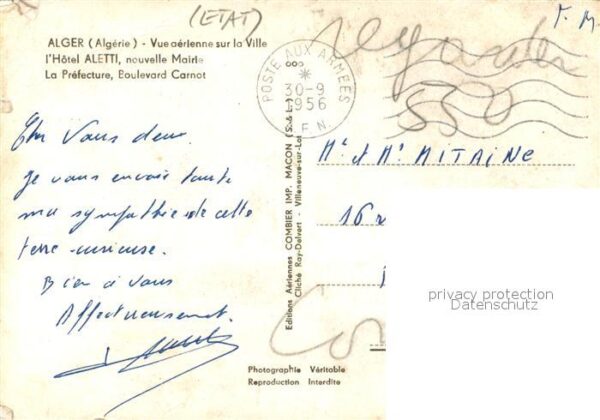 (ETAT)
F. M.
ALGER (Algérie) - Vue aérienne sur la Ville
l'Hôtel ALETTI, nouvelle Mairie
La Préfecture, Boulevard Carnot
POSTE AUX ARMEES
*
30-9
1956
F. N.
550
Cher Vous deux.
Je vous envoie toute
ma sympathie de cette
terre curieuse.
Bien à vous
Affectueusement.
Editions Aériennes COMBIER IMP. MACON (S.& L.)
Cliché Ray-Delvert - Villeneuve-sur-Lot
Mr et Me MITAINE
16
privacy protection
Datenschutz
Photographie Véritable
Reproduction Interdite